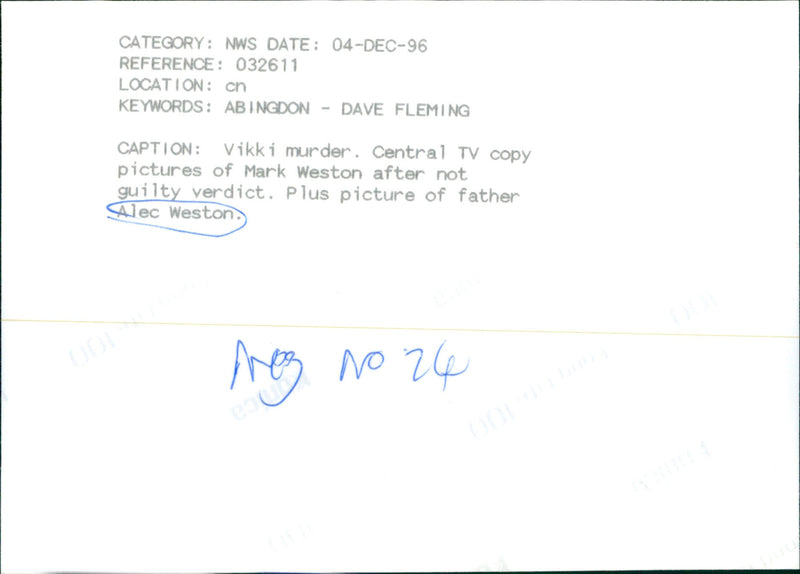 CATEGORY: NWS DATE: 04-DEC-96
REFERENCE: 032611
LOCATION: cn
KEYWORDS: ABINGDON - DAVE FLEMING
CAPTION: Vikki murder. Central TV copy
pictures of Mark Weston after not
guilty verdict. Plus picture of father
Alec Weston.
Neg No 24